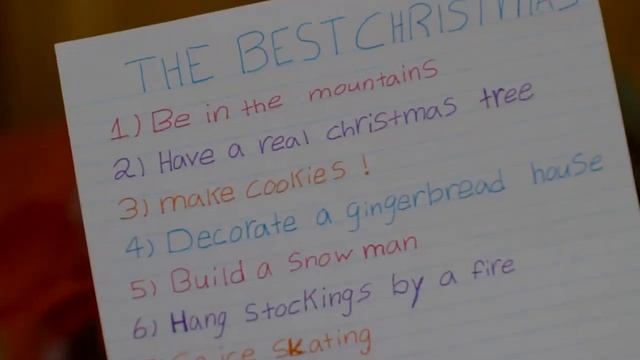 THE BEST CHRISTMAS
1) Be in the mountains
2) Have a real christmas tree
3) make cookies !
4) Decorate a gingerbread house
5) Build a Snow man
6) Hang Stockings by a fire
ice Skating